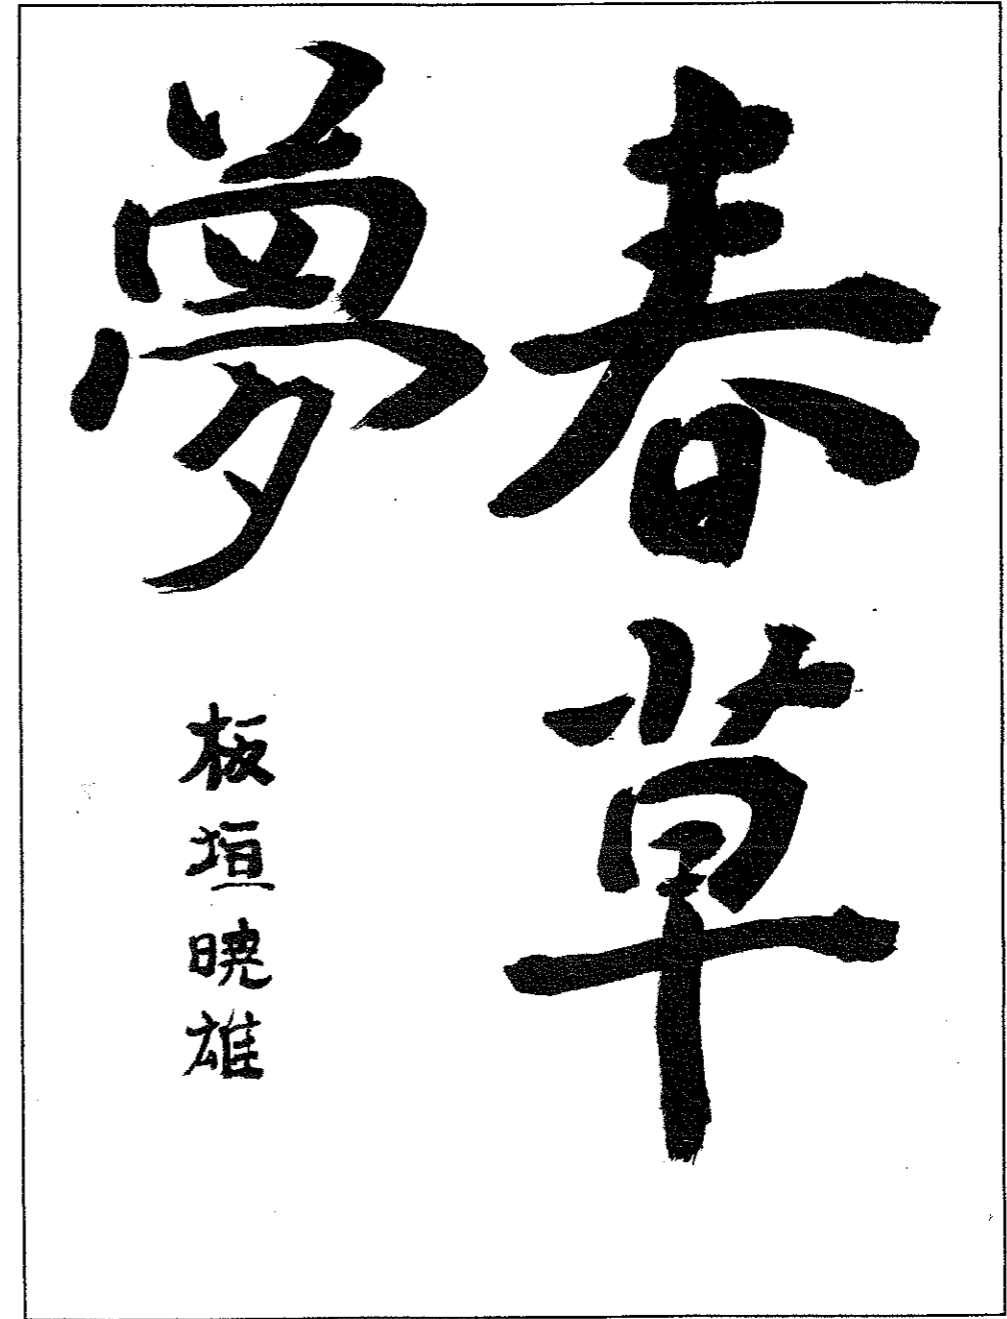 春草
夢
板垣暁雄